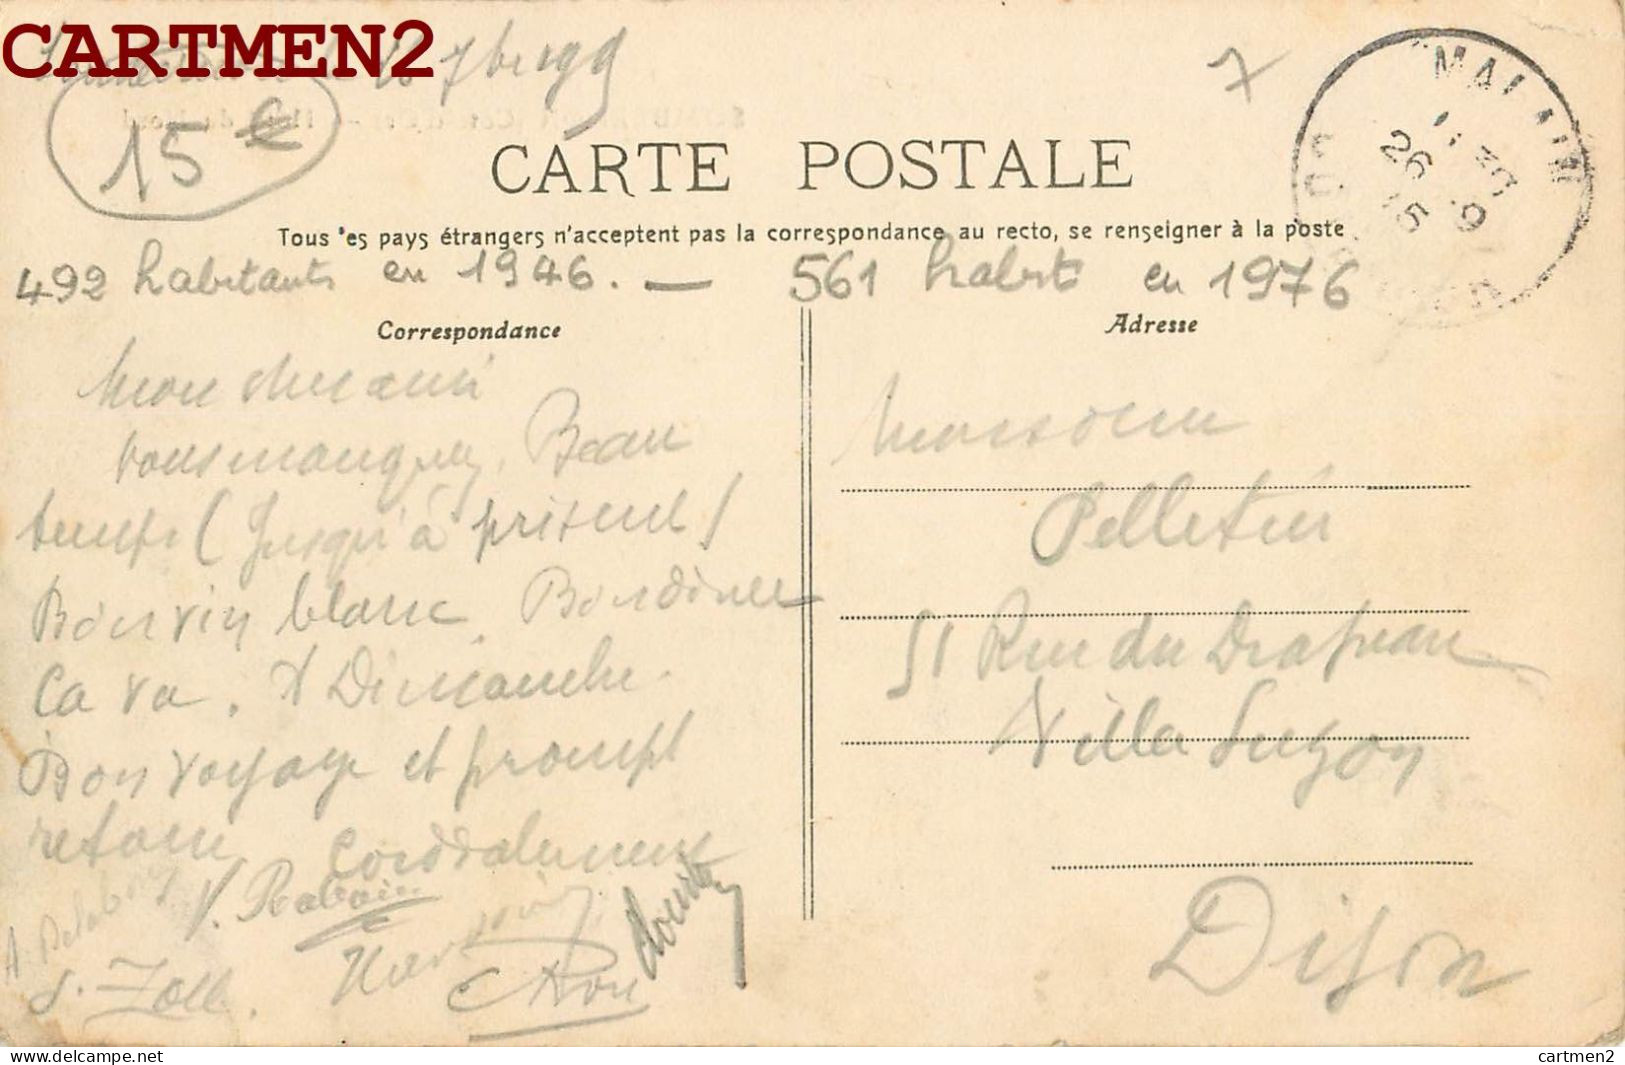 CARTMEN2
7
15 €
MALAIN
26
CARTE POSTALE
Tous 'es pays étrangers n'acceptent pas la correspondance au recto, se renseigner à la poste
492 habitants en 1946. — 561 habts en 1976
Correspondance
Mon cher ami
vous manquez. Beau
temps (jusqu'à présent)
Bon vin blanc.
Ca va. Dimanche.
Bon voyage et prompt
retour
Cordialement
Adresse
Monsieur
Pelletier
51 Rue du Drapeau
Villa Suzon
Dijon
cartmen2